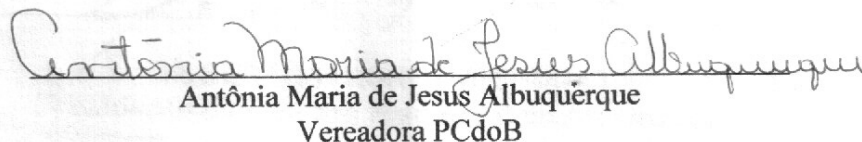 Antônia Maria de Jesus Albuquerque
Antônia Maria de Jesus Albuquerque
Vereadora PCdoB